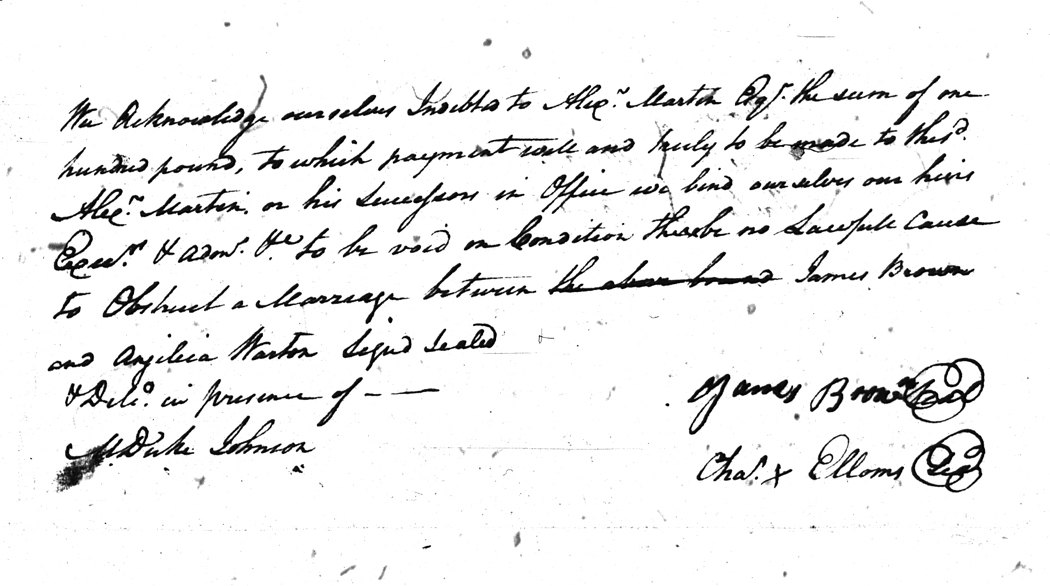 We Acknowledge ourselves Indebted to Alexr. Martin Esqr. the sum of one
hundred pound, to which payment well and truly to be made to the sd.
Alexr. Martin, or his Successors in Office we bind ourselves our heirs
Execrs. & Admrs. &c to be void on Condition there be no Lawfull Cause
to Obstruct a Marriage between the above bound James Brown
and Angilica Warton Signd Sealed
& Deld. in presence of — —
M. Duke Johnson
James Brown Seal
Chas. x Elloms Seal